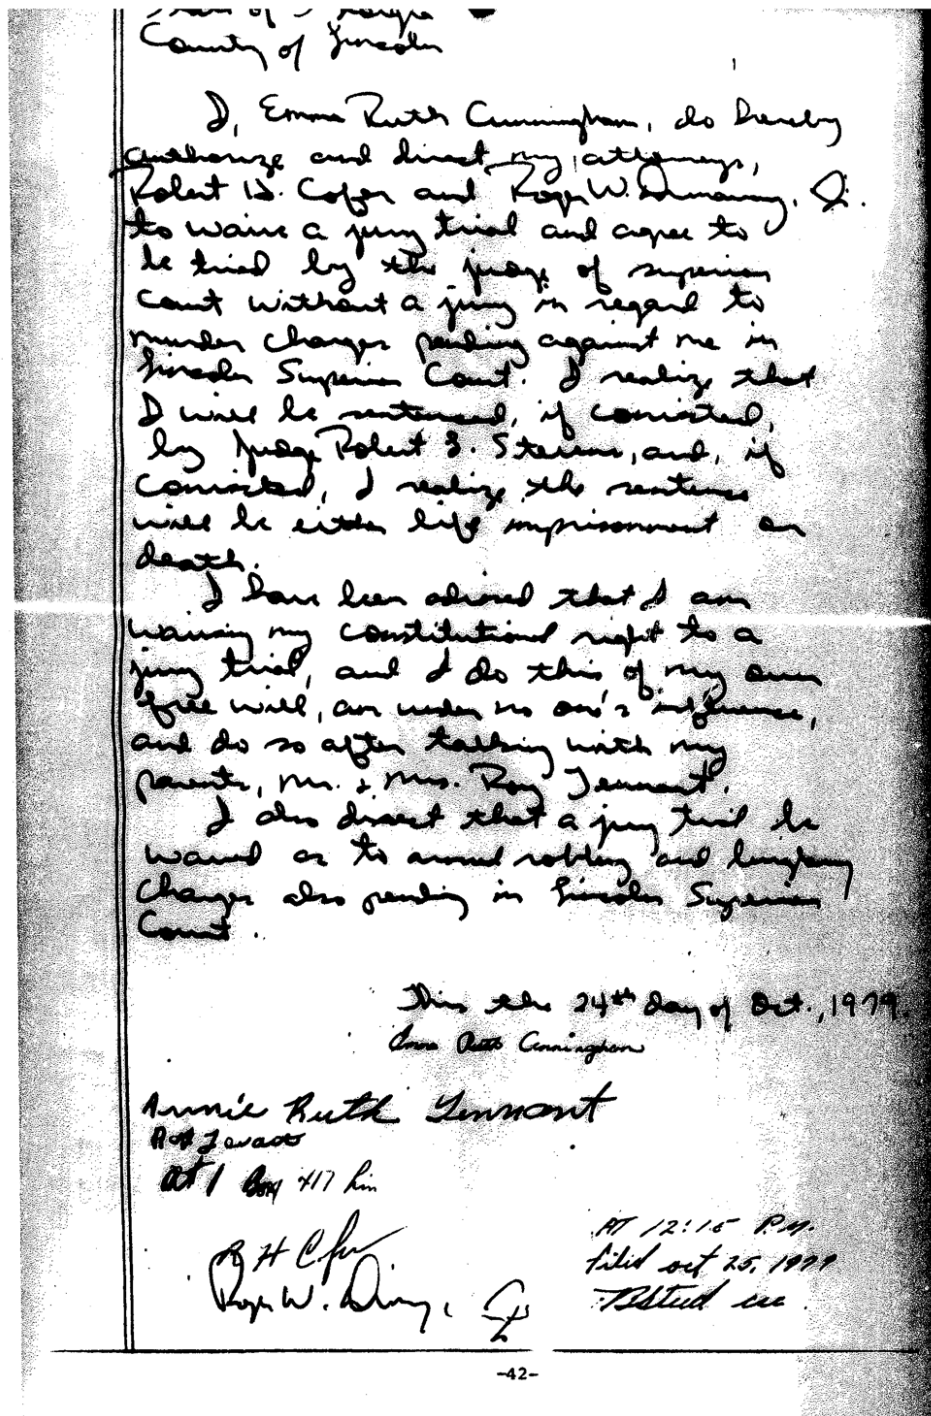 State of Georgia
County of Lincoln
I, Emma Ruth Cunningham, do hereby
authorize and direct my attorneys,
Robert H. Cofer and Roger W. Dunaway, Jr.
to waive a jury trial and agree to
be tried by the judge of superior
court without a jury in regard to
murder charges pending against me in
Lincoln Superior Court. I realize that
I will be sentenced, if convicted,
by Judge Robert L. Stevens, and, if
convicted, I realize the sentence
will be either life imprisonment or
death.
I have been advised that I am
waiving my constitutional right to a
jury trial, and I do this of my own
free will, am under no one's influence,
and do so after talking with my
parents, Mr. & Mrs. Roy Tennant.
I also direct that a jury trial be
waived as to armed robbery and burglary
charges also pending in Lincoln Superior
Court.
This the 24th day of Oct., 1979.
Emma Ruth Cunningham
Annie Ruth Tennant
Rt 1 Box 417 Lin
R H Cofer
Roger W. Dunaway, Jr
AT 12:15 P.M.
Filed Oct 25, 1979
-42-